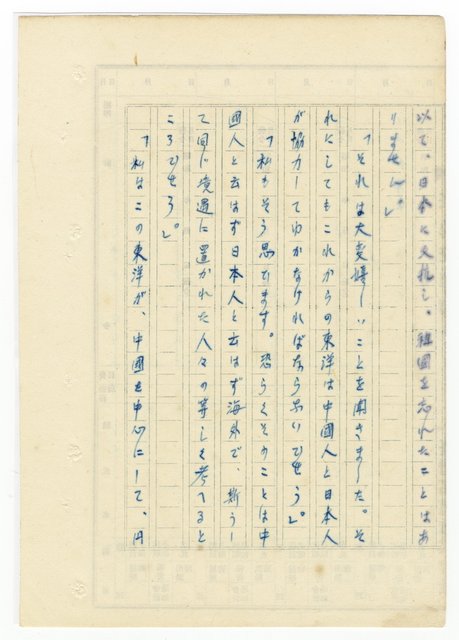 以て、日本に反抗し、祖國を忘れたことはあ
りません」。
「それは大変嬉しいことを聞きました。そ
れにしてもこれからの東洋は中國人と日本人
が協力してゆかなければならないでせう」。
「私もそう思ひます。恐らくそのことは中
國人と云はず日本人と云はず海外で、斯うし
て同じ境遇に置かれた人々の等しく考へると
ころでせう」。
「私はこの東洋が、中國を中心にして、円